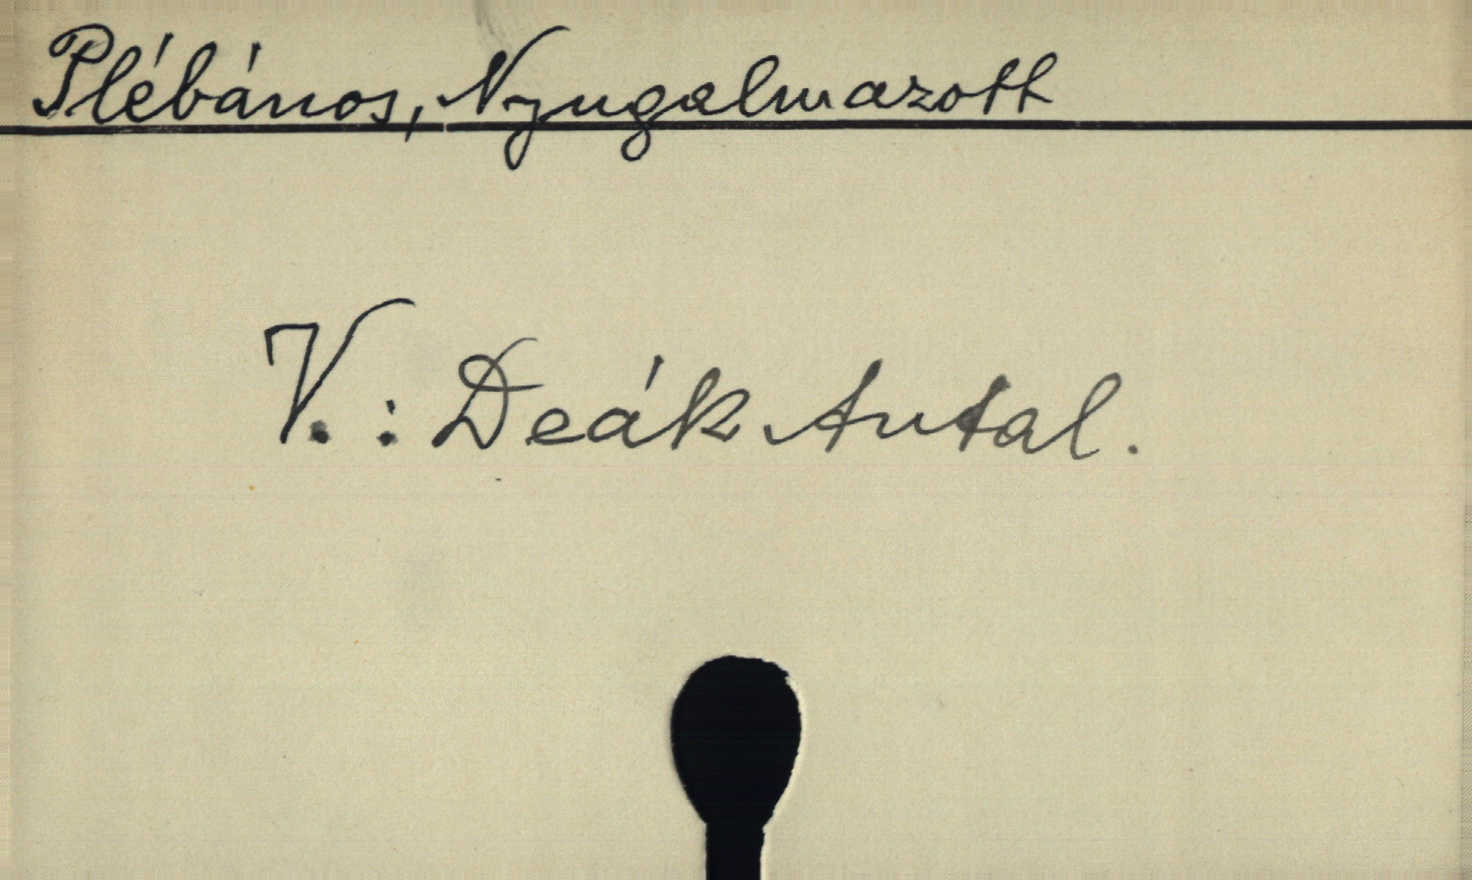 Plébános, Nyugalmazott
V. : Deák Antal.